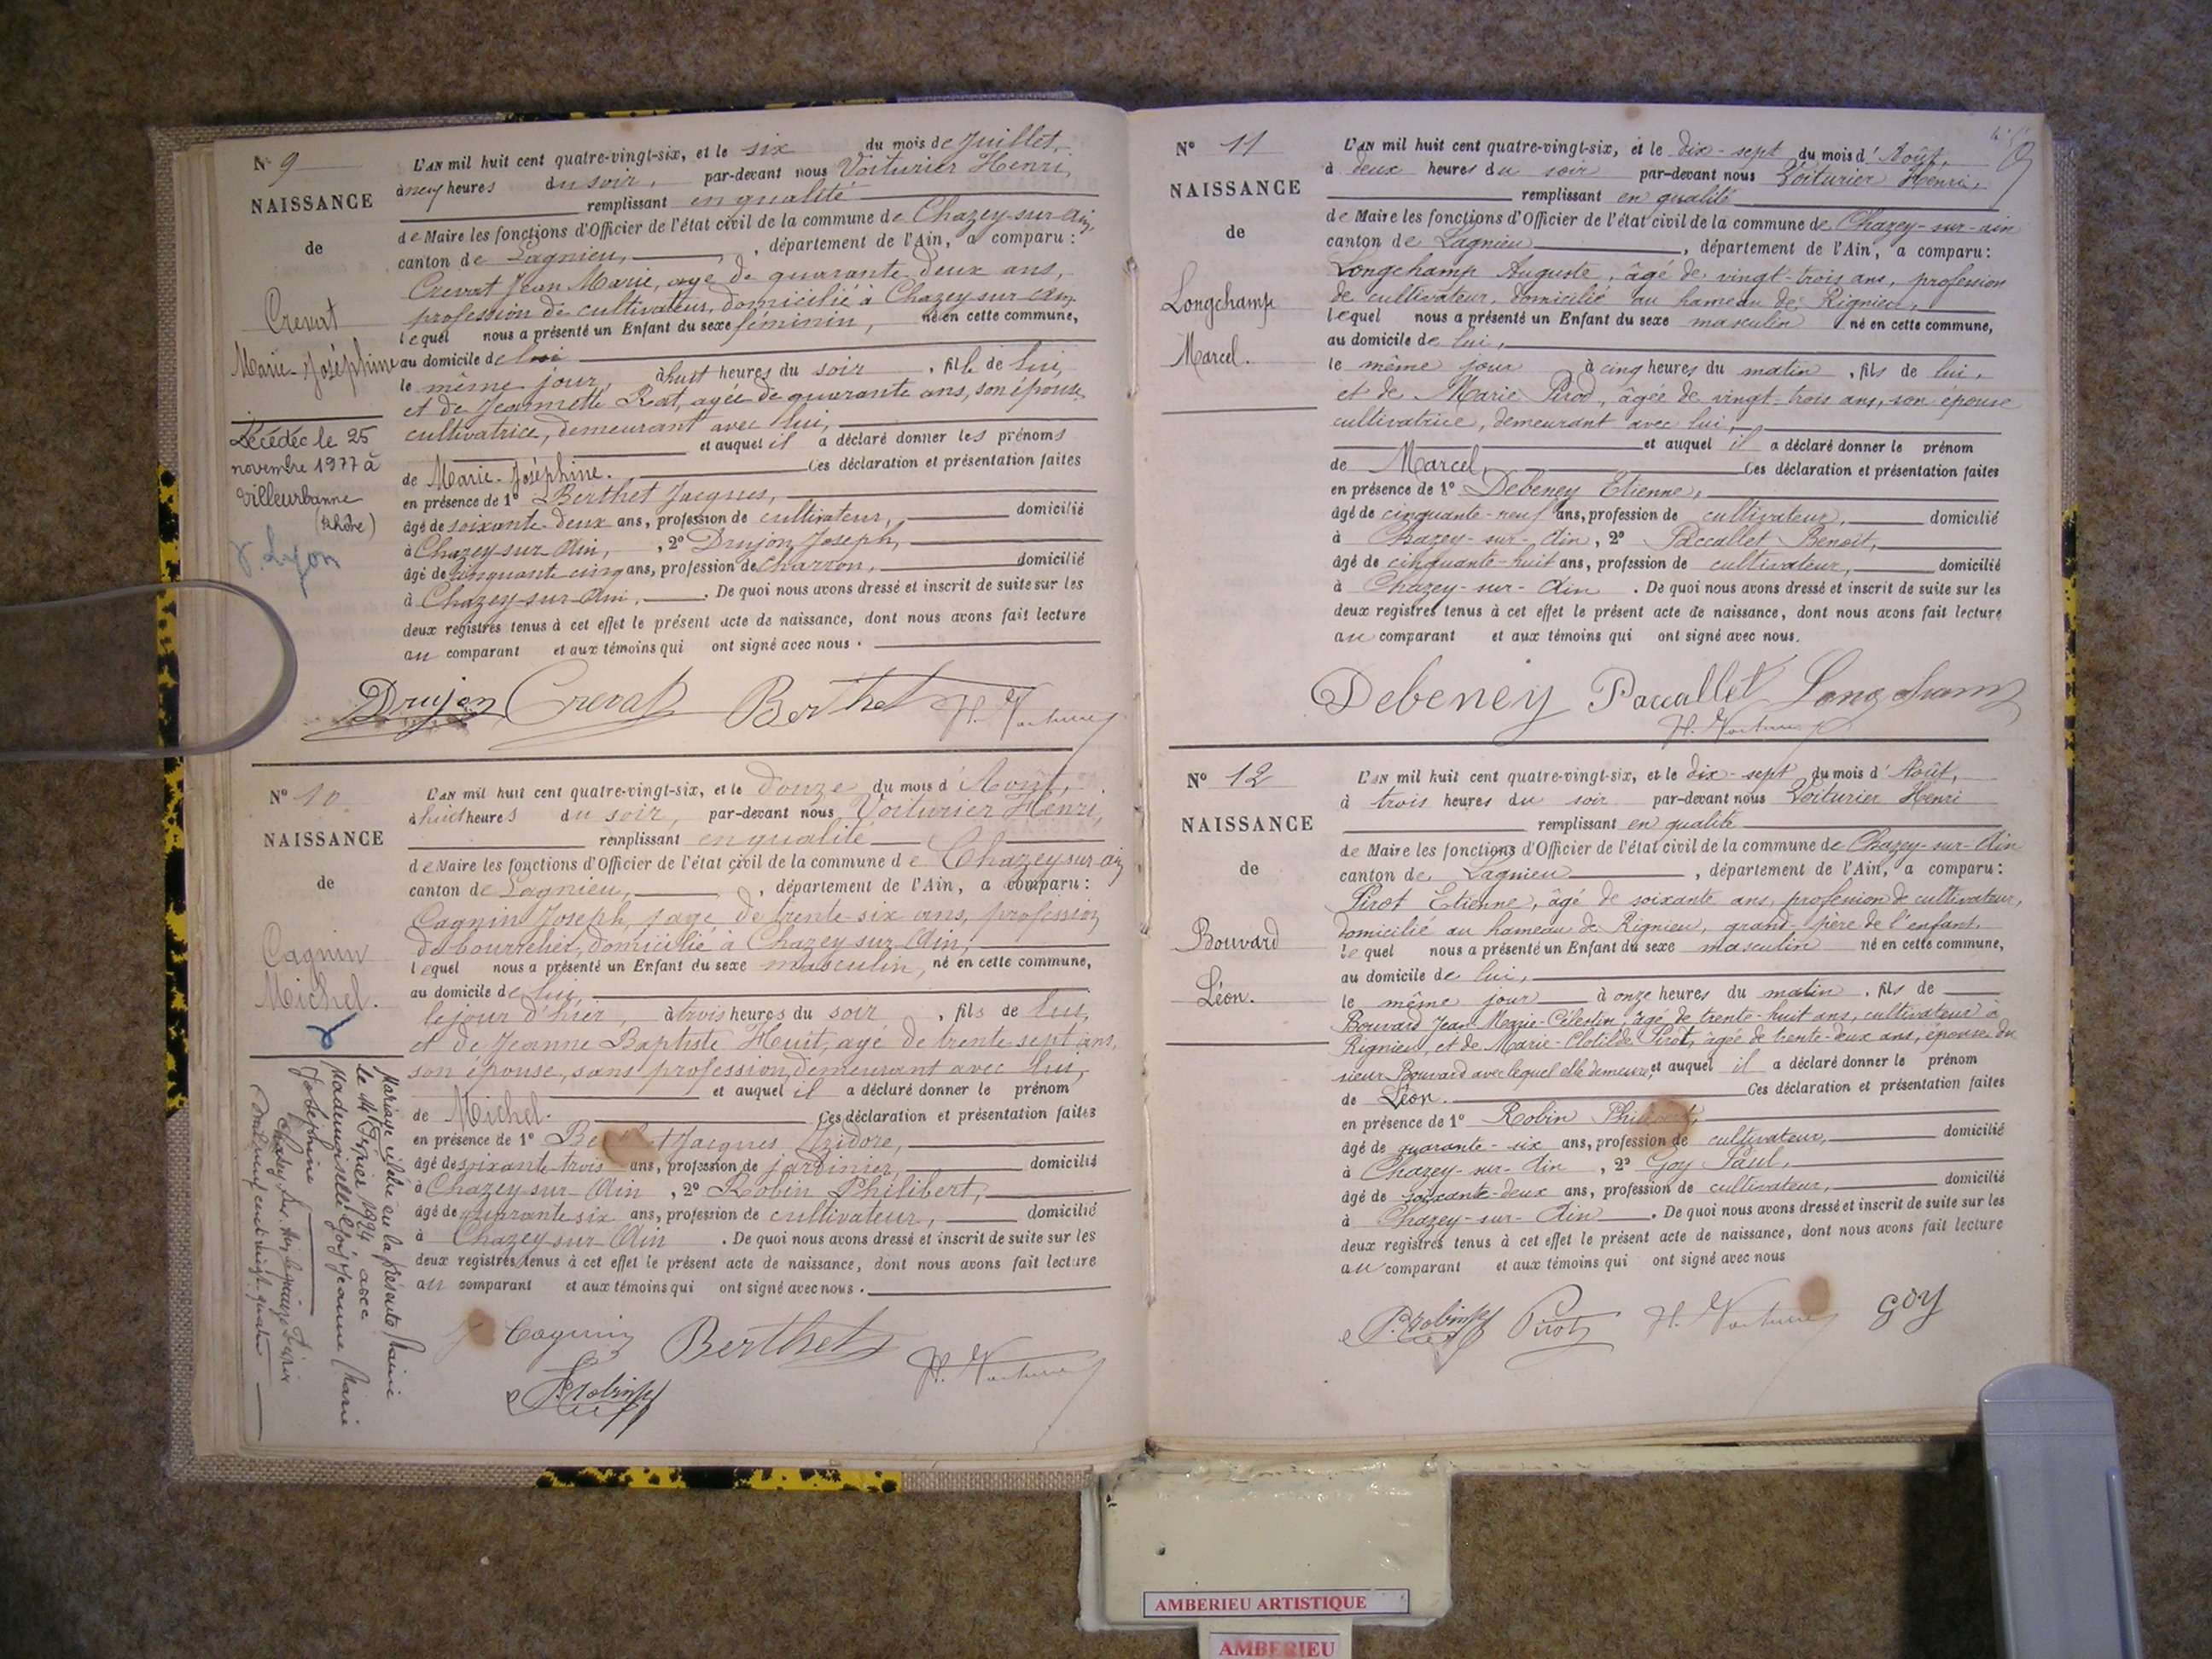 N° 9
NAISSANCE
de
Crevat
Marie-Joséphine
Décédée le 25
novembre 1977 à
Villeurbanne
(Rhône)
Lyon
L'an mil huit cent quatre-vingt-six, et le six du mois de Juillet,
à neuf heures du soir, par-devant nous Voiturier Henri,
remplissant en qualité
de Maire les fonctions d'Officier de l'état civil de la commune de Chazey-sur-Ain,
canton de Lagnieu, département de l'Ain, a comparu :
Crevat Jean Marie, agé de quarante deux ans,
profession de cultivateur, domicilié à Chazey sur Ain
lequel nous a présenté un Enfant du sexe féminin, né en cette commune,
au domicile de lui
le même jour, à huit heures du soir, fille de lui,
et de Jeannette Rat, agée de quarante ans, son épouse
cultivatrice, demeurant avec lui,
et auquel il a déclaré donner les prénoms
de Marie-Joséphine. Ces déclaration et présentation faites
en présence de 1° Berthet Jacques,
âgé de soixante-deux ans, profession de cultivateur, domicilié
à Chazey-sur-Ain, 2° Drujon Joseph,
âgé de cinquante cinq ans, profession de charron, domicilié
à Chazey-sur-Ain. De quoi nous avons dressé et inscrit de suite sur les
deux registres tenus à cet effet le présent acte de naissance, dont nous avons fait lecture
au comparant et aux témoins qui ont signé avec nous.
Drujon Crevat Berthet H. Voiturier
N° 10
NAISSANCE
de
Cagnin
Michel.
Mariage célébré en la présente Mairie
le 14 Février 1924 avec
Mademoiselle Jeanne Marie
Joséphine
Chazey-sur-Ain le quinze Février
mil neuf cent vingt-quatre
L'an mil huit cent quatre-vingt-six, et le douze du mois d'Août,
à huit heures du soir, par-devant nous Voiturier Henri,
remplissant en qualité
de Maire les fonctions d'Officier de l'état civil de la commune de Chazey sur Ain
canton de Lagnieu, département de l'Ain, a comparu :
Cagnin Joseph, agé de trente-six ans, profession
de bourrelier, domicilié à Chazey sur Ain,
lequel nous a présenté un Enfant du sexe masculin, né en cette commune,
au domicile de lui,
le jour d'hier, à trois heures du soir, fils de lui,
et de Jeanne Baptiste Huit, agé de trente sept ans,
son épouse, sans profession, demeurant avec lui,
et auquel il a déclaré donner le prénom
de Michel. Ces déclaration et présentation faites
en présence de 1° Berthet Jacques Izidore,
âgé de soixante-trois ans, profession de jardinier, domicilié
à Chazey sur Ain, 2° Robin Philibert,
âgé de quarante six ans, profession de cultivateur, domicilié
à Chazey sur Ain. De quoi nous avons dressé et inscrit de suite sur les
deux registres tenus à cet effet le présent acte de naissance, dont nous avons fait lecture
au comparant et aux témoins qui ont signé avec nous.
Cagnin Berthet H. Voiturier
P. Robin
N° 11
NAISSANCE
de
Longchamp
Marcel.
L'an mil huit cent quatre-vingt-six, et le dix-sept du mois d'Août,
à deux heures du soir par-devant nous Voiturier Henri,
remplissant en qualité
de Maire les fonctions d'Officier de l'état civil de la commune de Chazey-sur-ain
canton de Lagnieu, département de l'Ain, a comparu :
Longchamp Auguste, âgé de vingt-trois ans, profession
de cultivateur, domicilié au hameau de Rignieu,
lequel nous a présenté un Enfant du sexe masculin né en cette commune,
au domicile de lui,
le même jour à cinq heures du matin, fils de lui,
et de Marie Pirod, âgée de vingt-trois ans, son épouse
cultivatrice, demeurant avec lui,
et auquel il a déclaré donner le prénom
de Marcel, Ces déclaration et présentation faites
en présence de 1° Debeney Etienne,
âgé de cinquante-neuf ans, profession de cultivateur, domicilié
à Chazey-sur-Ain, 2° Paccallet Benoît,
âgé de cinquante-huit ans, profession de cultivateur, domicilié
à Chazey-sur-Ain. De quoi nous avons dressé et inscrit de suite sur les
deux registres tenus à cet effet le présent acte de naissance, dont nous avons fait lecture
au comparant et aux témoins qui ont signé avec nous.
Debeney Paccallet Longchamp
H. Voiturier
N° 12
NAISSANCE
de
Bouvard
Léon.
L'an mil huit cent quatre-vingt-six, et le dix-sept du mois d'Août,
à trois heures du soir par-devant nous Voiturier Henri
remplissant en qualité
de Maire les fonctions d'Officier de l'état civil de la commune de Chazey-sur-Ain
canton de Lagnieu, département de l'Ain, a comparu :
Pirot Etienne, âgé de soixante ans, profession de cultivateur,
domicilié au hameau de Rignieu, grand-père de l'enfant,
lequel nous a présenté un Enfant du sexe masculin né en cette commune,
au domicile de lui,
le même jour à onze heures du matin, fils de
Bouvard Jean Marie-Célestin, âgé de trente-huit ans, cultivateur à
Rignieu, et de Marie-Clotilde Pirot, âgée de trente-deux ans, épouse du
sieur Bouvard avec lequel elle demeure, et auquel il a déclaré donner le prénom
de Léon. Ces déclaration et présentation faites
en présence de 1° Robin Philibert,
âgé de quarante-six ans, profession de cultivateur, domicilié
à Chazey-sur-Ain, 2° Goy Paul,
âgé de soixante-deux ans, profession de cultivateur, domicilié
à Chazey-sur-Ain. De quoi nous avons dressé et inscrit de suite sur les
deux registres tenus à cet effet le présent acte de naissance, dont nous avons fait lecture
au comparant et aux témoins qui ont signé avec nous
P. Robin Pirot H. Voiturier Goy
AMBERIEU ARTISTIQUE
AMBERIEU